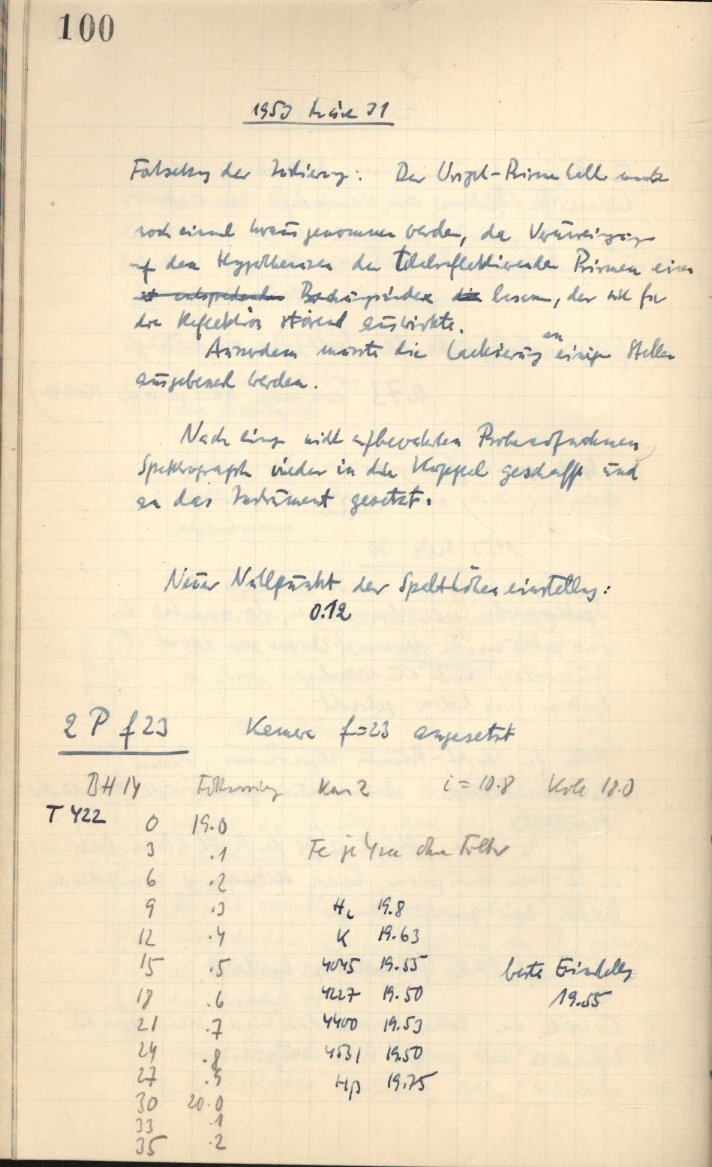 100
1953 März 31
Fortsetzung der Justierung: Der Ursigel-Prismenteller musste
noch einmal herausgenommen werden, da Verunreinigung
auf den Hypothenusen der totalreflektierenden Prismen einen
Brechungsindex besassen, der sich für
die Reflektion störend auswirkte.
Ausserdem musste die Lackierung an einigen Stellen
ausgebessert werden.
Nach einigen nicht aufbewahrten Probeaufnahmen
Spektrograph wieder in die Kuppel geschafft und
an das Instrument gesetzt.
Neuer Nullpunkt der Spalthöheneinstellung:
0.12
2 P f 23 Kamera f=23 angesetzt
BH 14 Fokussierung Kam 2 i = 10.8 Koll 18.0
T 422
0 19.0
3 .1 Fe je 4 sec ohne Filter
6 .2
9 .3 19.8
12 .4 K 19.63
15 .5 4045 19.55 beste Einstellung
18 .6 4227 19.50 19.55
21 .7 4400 19.53
24 .8 4531 19.50
27 .9 Hβ 19.75
30 20.0
33 .1
35 .2